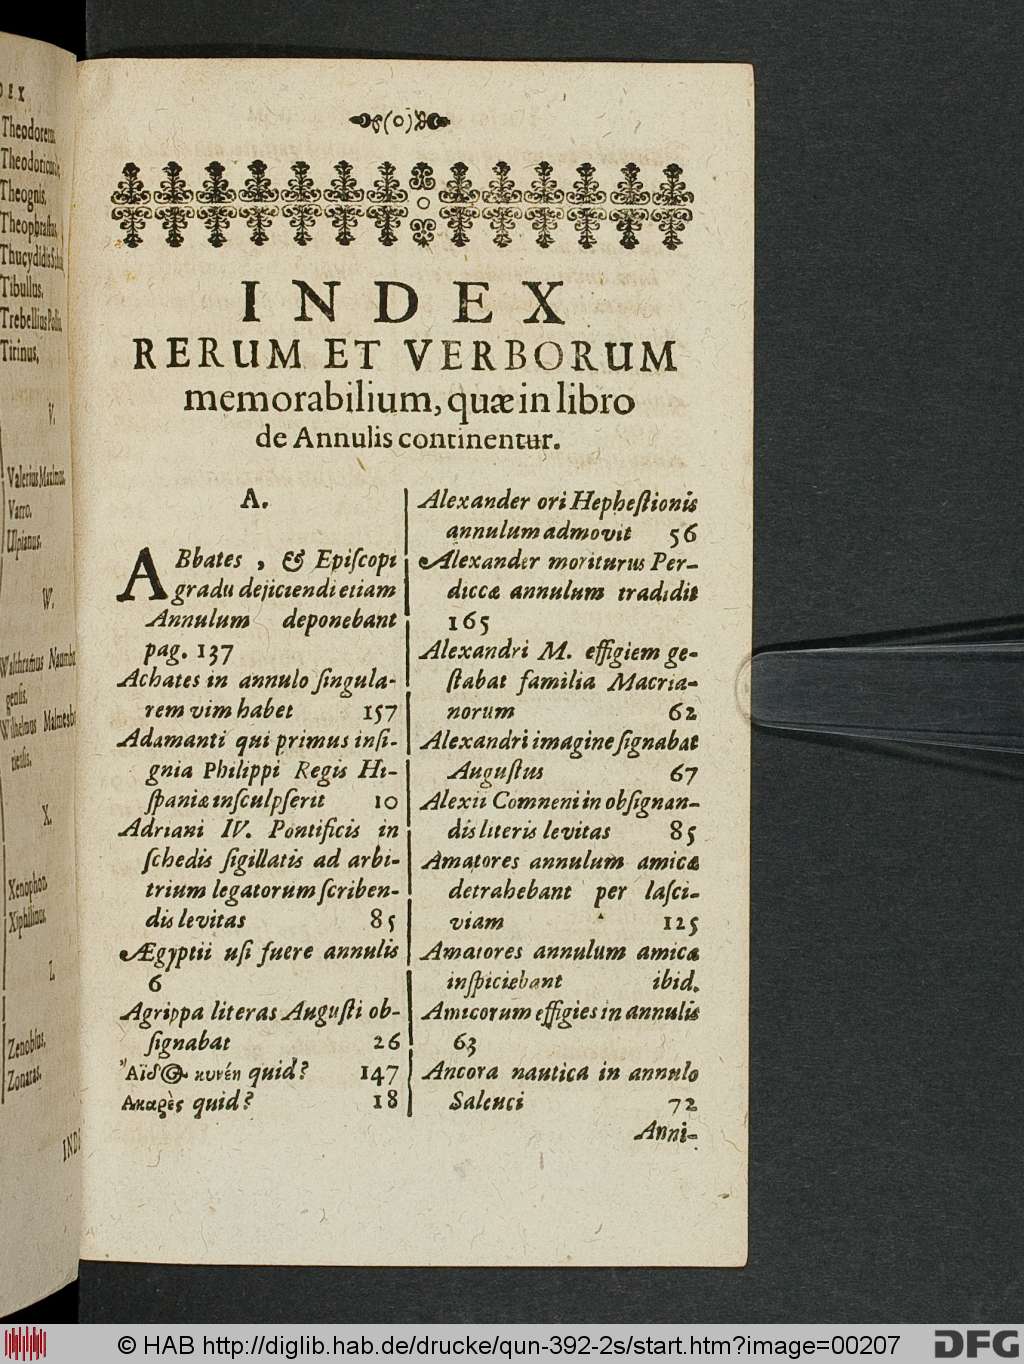 DEX
Theodoretus,
Theognis,
Theophrastus,
Tibullus,
Trebellius Pollio,
Tirinus,
V.
Valerius Maximus.
Varro.
Ulpianus.
W.
Walthramus Naumbur
gensis.
Wilhelmus Malmesbu
riensis.
X.
Xenophon.
Xiphilinus.
Z.
Zenobius.
Zonaras.
INDE
(o)
INDEX
RERUM ET VERBORUM
memorabilium, quæ in libro
de Annulis continentur.
A.
ABbates, & Epiſcopi
gradu dejiciendi etiam
Annulum deponebant
pag. 137
Achates in annulo ſingula-
rem vim habet 157
Adamanti qui primus inſi-
gnia Philippi Regis Hi-
ſpaniæ inſculpſerit 10
Adriani IV. Pontificis in
ſchedis ſigillatis ad arbi-
trium legatorum ſcriben-
dis levitas 85
Ægyptii uſi fuere annulis
6
Agrippa literas Auguſti ob-
ſignabat 26
Ἄϊδος κυνέη quid? 147
Ακαρὲς quid? 18
Alexander ori Hepheſtionis
annulum admovit 56
Alexander moriturus Per-
diccæ annulum tradidit
165
Alexandri M. effigiem ge-
ſtabat familia Macria-
norum 62
Alexandri imagine ſignabat
Auguſtus 67
Alexii Comneni in obſignan-
dis literis levitas 85
Amatores annulum amicæ
detrahebant per laſci-
viam 125
Amatores annulum amicæ
inſpiciebant ibid.
Amicorum effigies in annulis
63
Ancora nautica in annulo
Saleuci 72
Anni-
© HAB http://diglib.hab.de/drucke/qun-392-2s/start.htm?image=00207
DFG